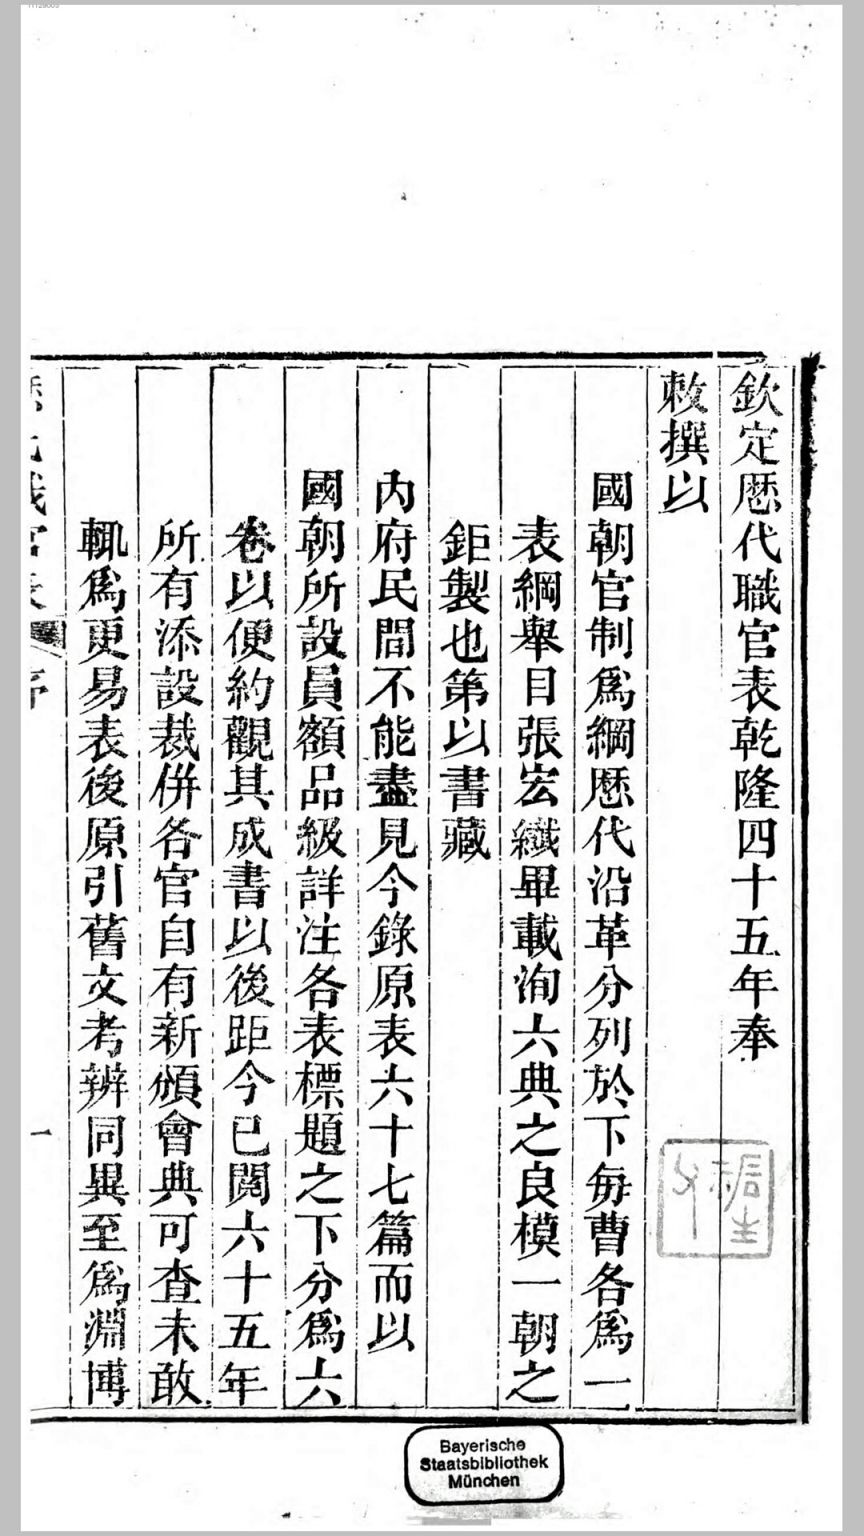 欽定厯代職官表乾隆四十五年奉
敕撰以
國朝官制爲綱厯代沿革分列於下毎曹各爲一
表綱舉目張宏纖畢載洵六典之良模一朝之
鉅製也第以書藏
內府民間不能盡見今錄原表六十七篇而以
國朝所設員額品級詳注各表標題之下分爲六
卷以便約觀其成書以後距今已閱六十五年
所有添設裁併各官自有新頒會典可查未敢
輒爲更易表後原引舊文考辨同異至爲淵博
一
Bayerische
Staatsbibliothek
München